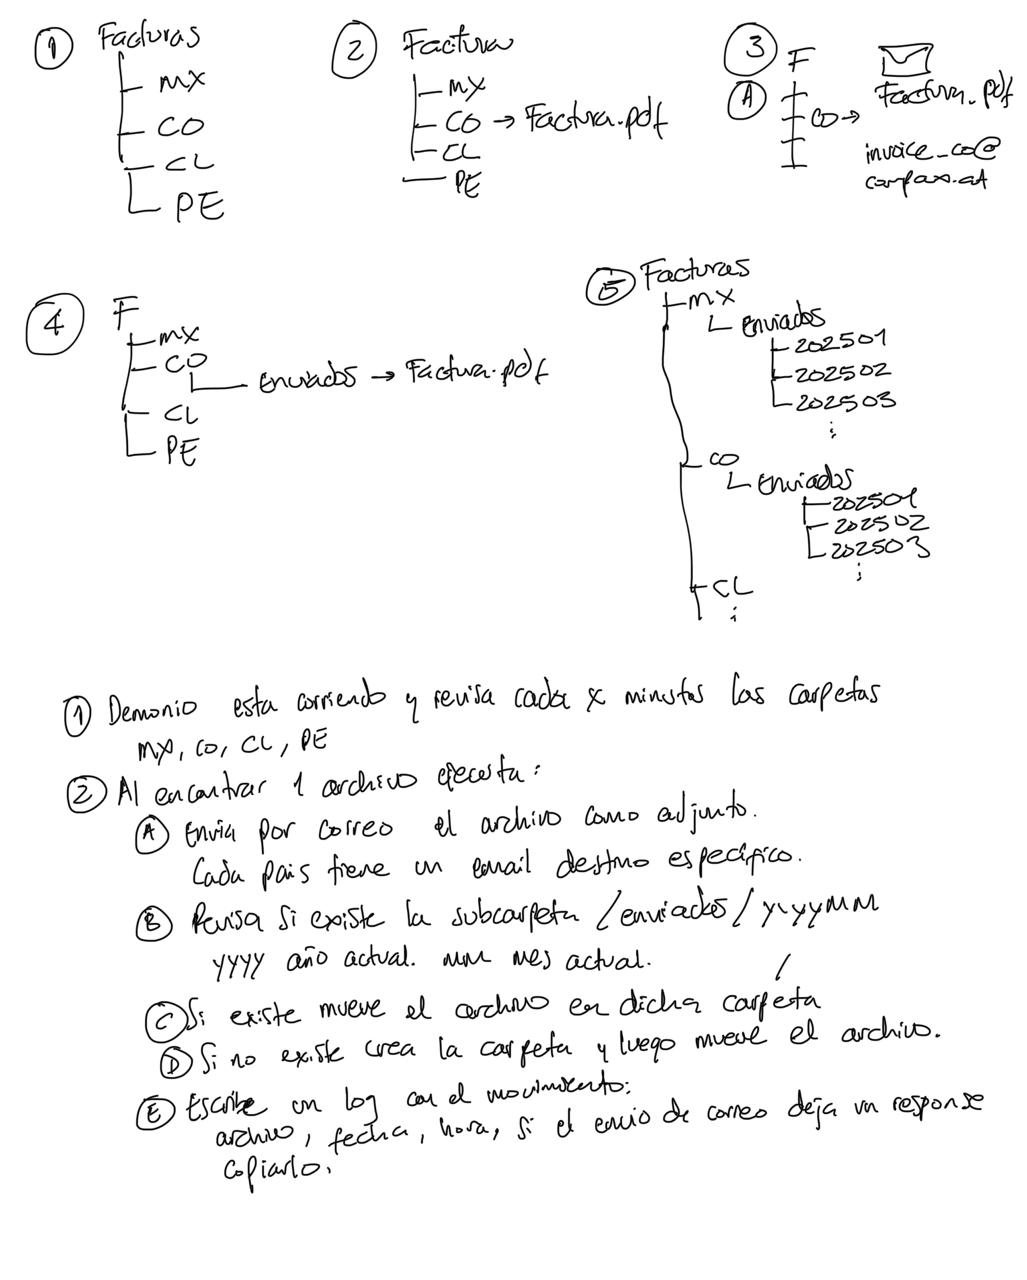 1 Facturas
MX
CO
CL
PE
2 Factura
MX
CO → Factura.pdf
CL
PE
3 F
A
CO →
Factura.pdf
invoice_co@
4 F
MX
CO
Enviados → Factura.pdf
CL
PE
5 Facturas
MX
Enviados
202501
202502
202503
⋮
CO
Enviados
202501
202502
202503
⋮
CL
⋮
1 Demonio esta corriendo y revisa cada x minutos las carpetas
MX, CO, CL, PE
2 Al encontrar 1 archivo ejecuta:
A Envia por correo el archivo como adjunto.
Cada pais tiene un email destino especifico.
B Revisa si existe la subcarpeta /enviados/yyyyMM
YYYY año actual. MM mes actual.
C Si existe mueve el archivo en dicha carpeta
D Si no existe crea la carpeta y luego mueve el archivo.
E Escribe un log con el movimiento:
archivo, fecha, hora, si el envio de correo deja un response
copiarlo.